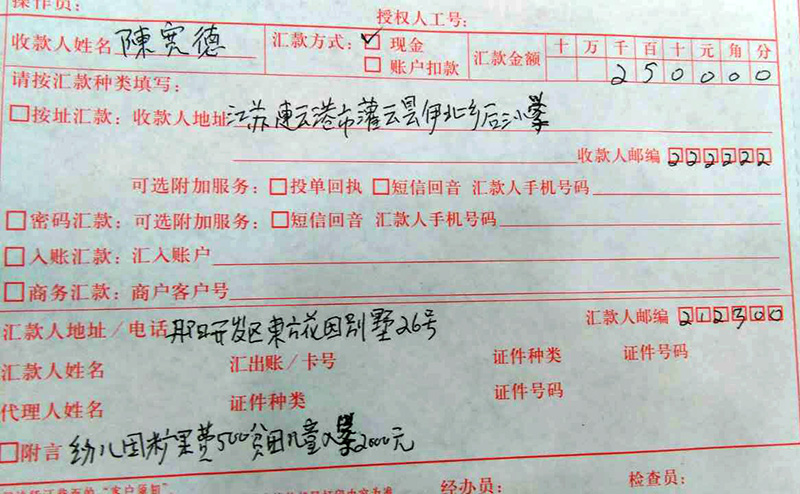 操作员：
授权人工号：
收款人姓名 陳宽德 汇款方式：☑ 现金 汇款金额 十 万 千 百 十 元 角 分
□ 账户扣款 2 5 0 0 0 0
请按汇款种类填写：
□按址汇款：收款人地址 江苏连云港市灌云县伊北乡后沙小学
收款人邮编 222222
可选附加服务：□投单回执 □短信回音 汇款人手机号码
□密码汇款：可选附加服务：□短信回音 汇款人手机号码
□入账汇款：汇入账户
□商务汇款：商户客户号
汇款人地址／电话 丹阳开发区東方花园别墅26号 汇款人邮编 212300
汇款人姓名 汇出账／卡号 证件种类 证件号码
代理人姓名 证件种类 证件号码
□附言 幼儿园粉果费500贫困儿童入学2000元
经办员： 检查员：